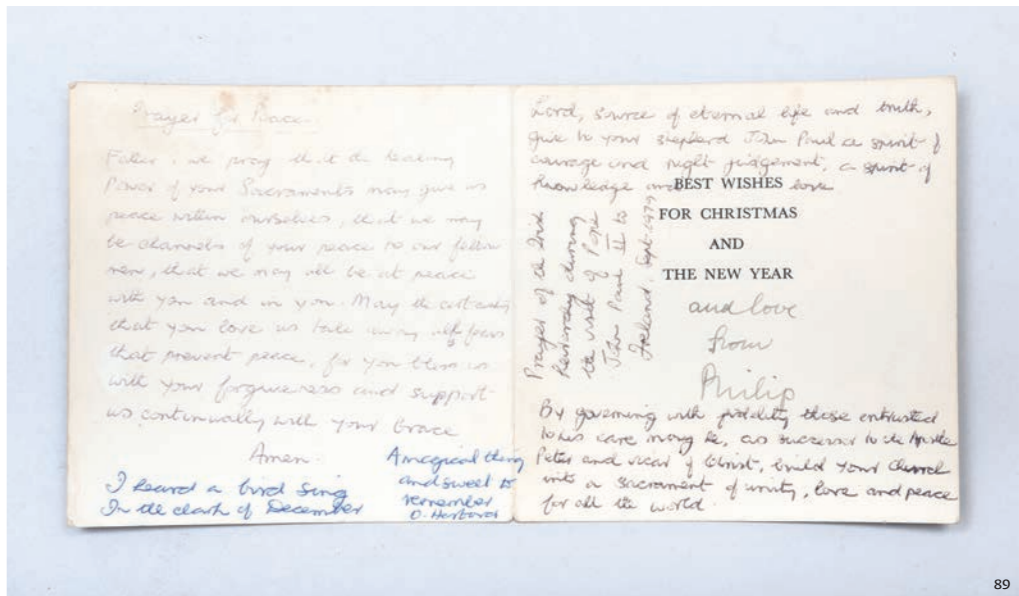 Prayer for Peace
Father, we pray that the healing
Power of your Sacraments may give us
peace within ourselves, that we may
be channels of your peace to our fellow
men, that we may all be at peace
with you and in you. May the certainty
that you love us take away all fears
that prevent peace, for you bless us
with your forgiveness and support
us continually with your Grace
Amen.
I heard a bird sing
In the dark of December
A magical thing
and sweet to
remember
O. Herford
Lord, source of eternal life and truth,
give to your shepherd John Paul a spirit of
courage and right judgement, a spirit of
knowledge and love
BEST WISHES
FOR CHRISTMAS
AND
THE NEW YEAR
and love
from
Philip
Prayer of the Irish
during
the visit of Pope
John Paul II to
Ireland, Sept. 1979
By governing with fidelity those entrusted
to his care may he, as successor to the Apostle
Peter and vicar of Christ, build your Church
into a sacrament of unity, love and peace
for all the world.
89